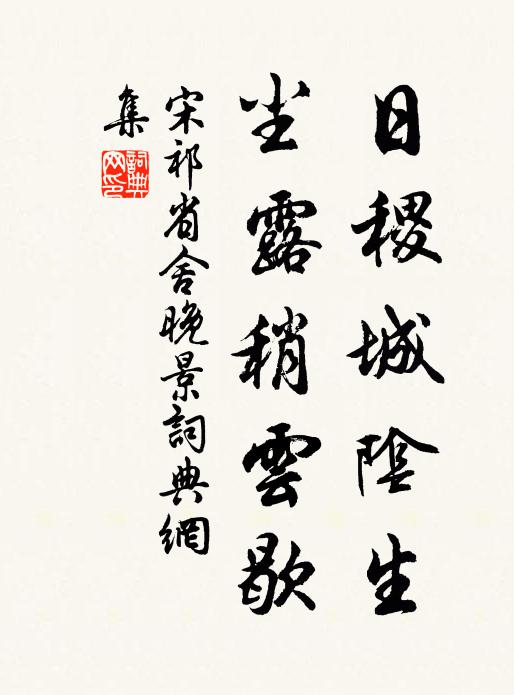 日稷城陰生
坐露稍雲歇
宋祁省舍晚景詞典網
集
詞典
网印